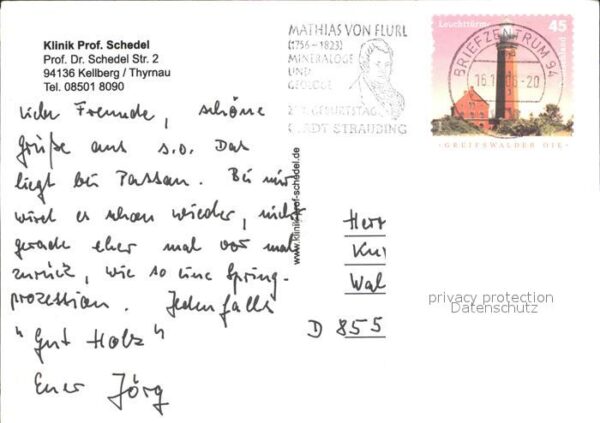 Klinik Prof. Schedel
Prof. Dr. Schedel Str. 2
94136 Kellberg / Thyrnau
Tel. 08501 8090
MATHIAS VON FLURL
(1756 - 1823)
MINERALOGE
UND
GEOLOGE
GEBURTSTAG
STRAUBING
Leuchtturm
45
BRIEFZENTRUM 94
-20
GREIFSWALDER OIE
Liebe Freunde, schöne
Grüße aus s.o. Das
liegt bei Passau. Bei mir
wird es schon wieder, nicht
gerade eher mal vor mal
zurück, wie so eine Spring-
prozession. Jedenfalls
"Gut Holz"
Euer Jörg
www.klinik-prof-schedel.de
Herr
Kur
Wal
D 855
privacy protection
Datenschutz